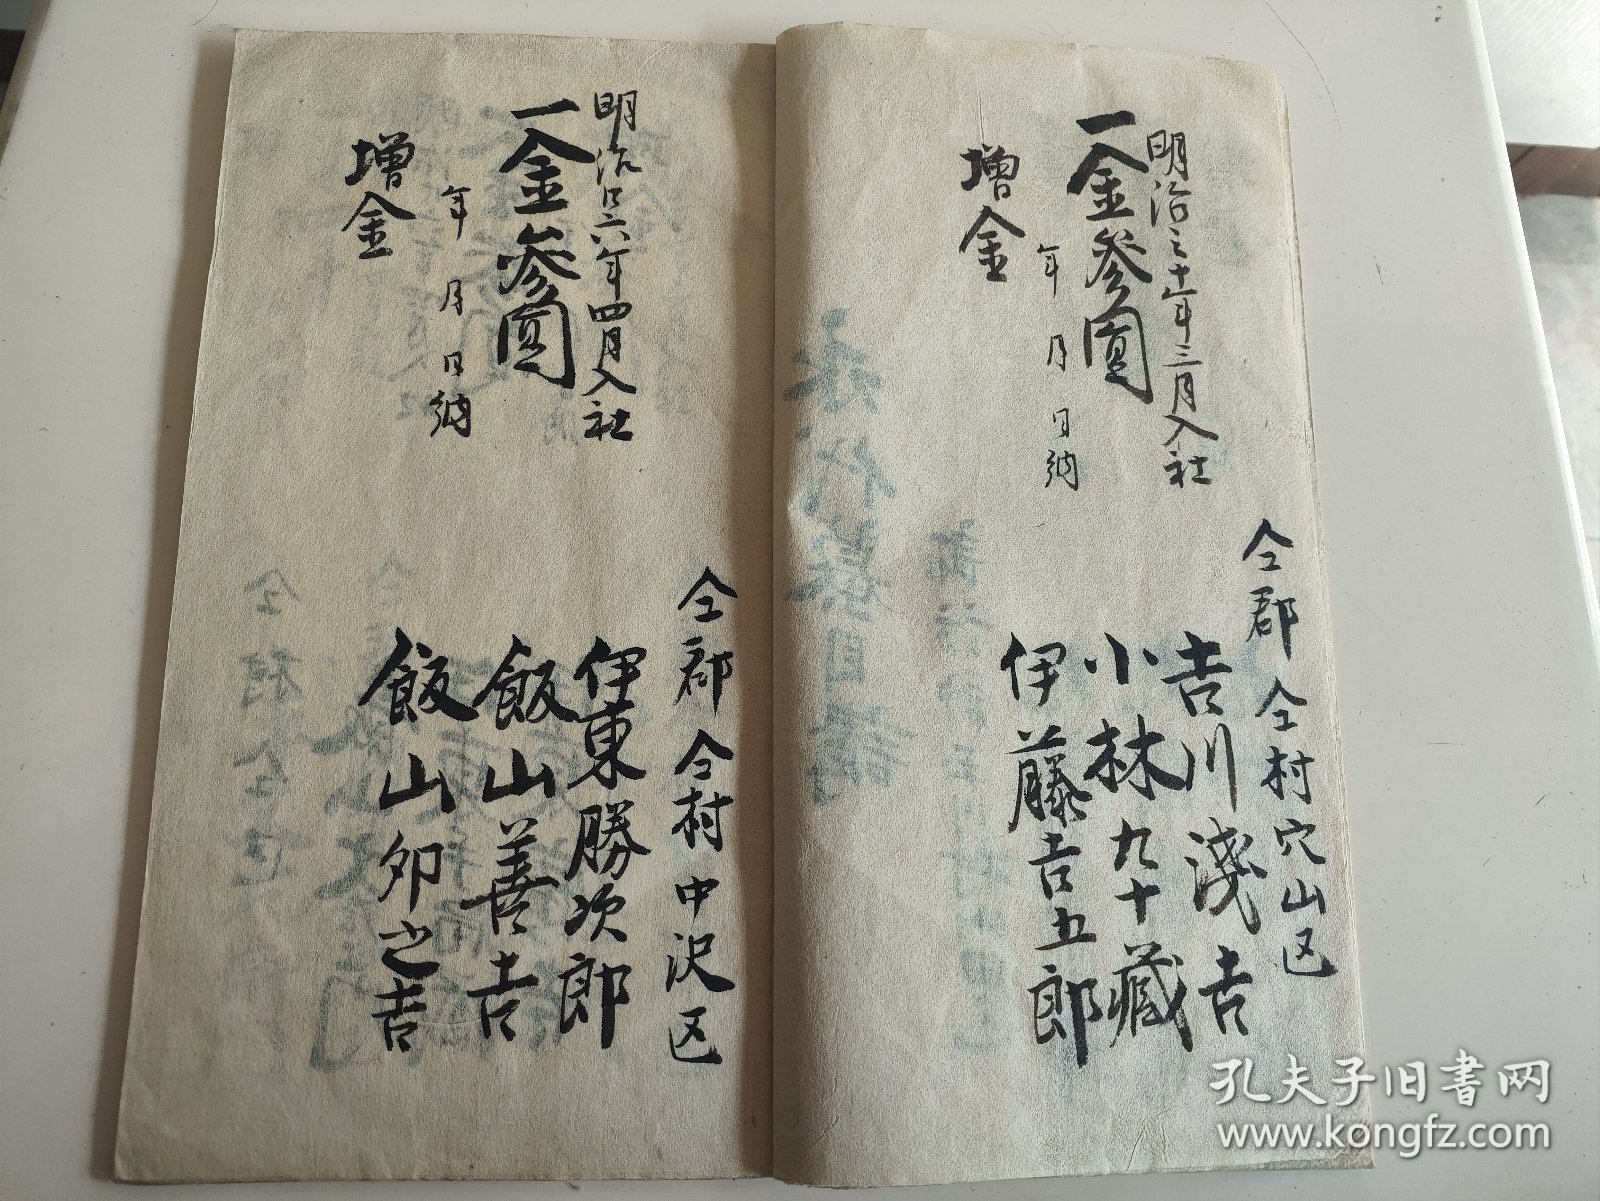 明治三十年三月入社
一金参圓
年 月 日納
増金
仝郡仝村穴山区
吉川浅吉
小林九十藏
伊藤吉五郎
明治廿六年四月入社
一金参圓
年 月 日納
増金
仝郡仝村中沢区
伊東勝次郎
飯山善吉
飯山卯之吉
孔夫子旧書网
www.kongfz.com